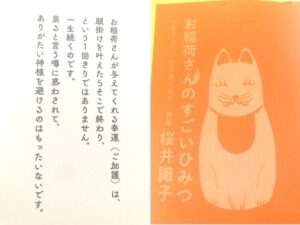 お稲荷さんが与えてくれる幸運（ご加護）は、
願掛けを叶えたらそこで終わり、
という1回きりではありません。
一生続くのです。
祟ると言う噂に惑わされて、
ありがたい神様を避けるのはもったいないです。
お稲荷さんのすごいひみつ
桜井識子